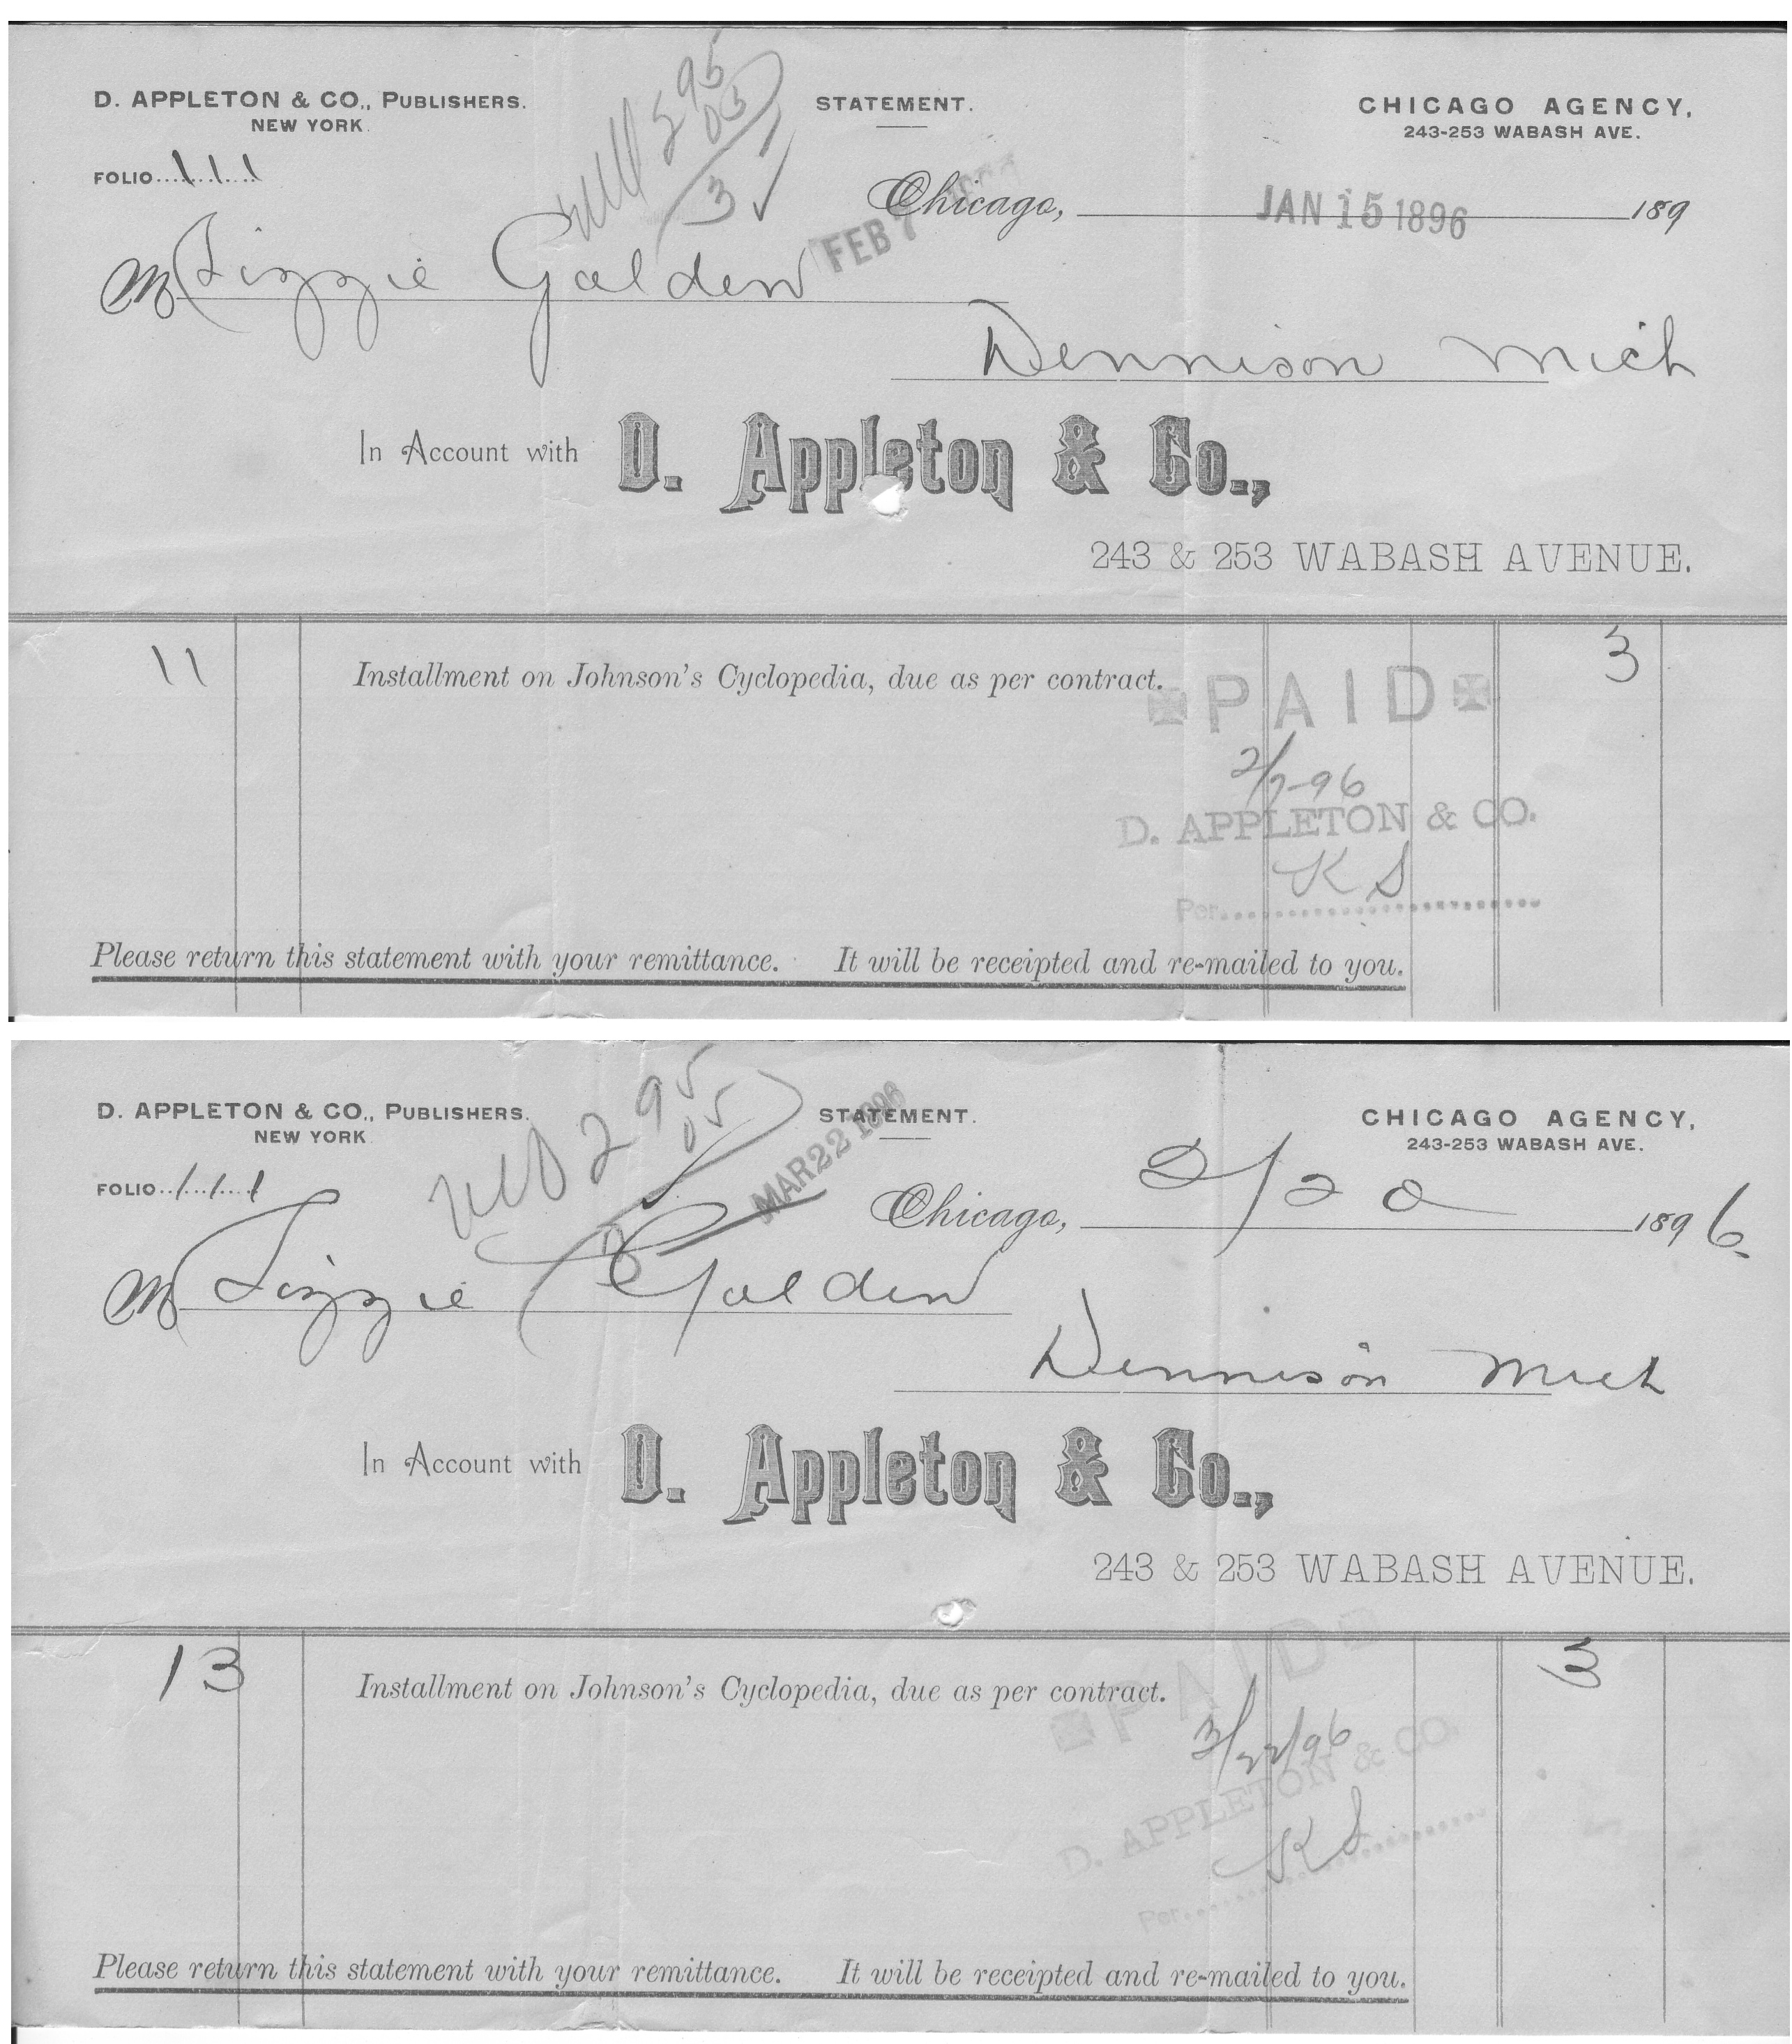 D. APPLETON & CO., PUBLISHERS.
NEW YORK.
STATEMENT.
CHICAGO AGENCY,
243-253 WABASH AVE.
95
05
3
FOLIO 111
Chicago, JAN 15 1896 189
FEB 7
M Lizzie Golden
Dennison Mich
In Account with D. Appleton & Co.,
243 & 253 WABASH AVENUE.
11 Installment on Johnson's Cyclopedia, due as per contract. 3
PAID
2/7-96
D. APPLETON & CO.
Per KS
Please return this statement with your remittance. It will be receipted and re-mailed to you.
D. APPLETON & CO., PUBLISHERS.
NEW YORK
STATEMENT.
CHICAGO AGENCY,
243-253 WABASH AVE.
2 95
05
3
MAR 22 1896
FOLIO 111
Chicago, 2/20 1896.
M Lizzie Golden
Dennison Mich
In Account with D. Appleton & Co.,
243 & 253 WABASH AVENUE.
13 Installment on Johnson's Cyclopedia, due as per contract. 3
PAID
3/22/96
D. APPLETON & CO.
Per KS
Please return this statement with your remittance. It will be receipted and re-mailed to you.